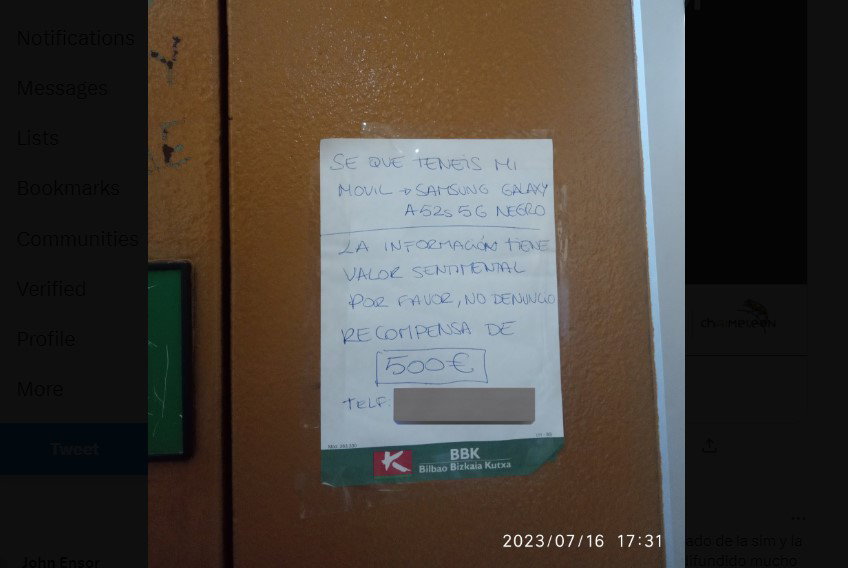 Notifications
Messages
Lists
Bookmarks
Communities
Verified
Profile
More
Tweet
John Ensor
SE QUE TENEIS MI
MOVIL → SAMSUNG GALAXY
A52s 5G NEGRO
LA INFORMACIÓN TIENE
VALOR SENTIMENTAL
POR FAVOR, NO DENUNCIO
RECOMPENSA DE
500€
TELF.
BBK
Bilbao Bizkaia Kutxa
2023/07/16 17:31
ado de la sim y la
difundido mucho